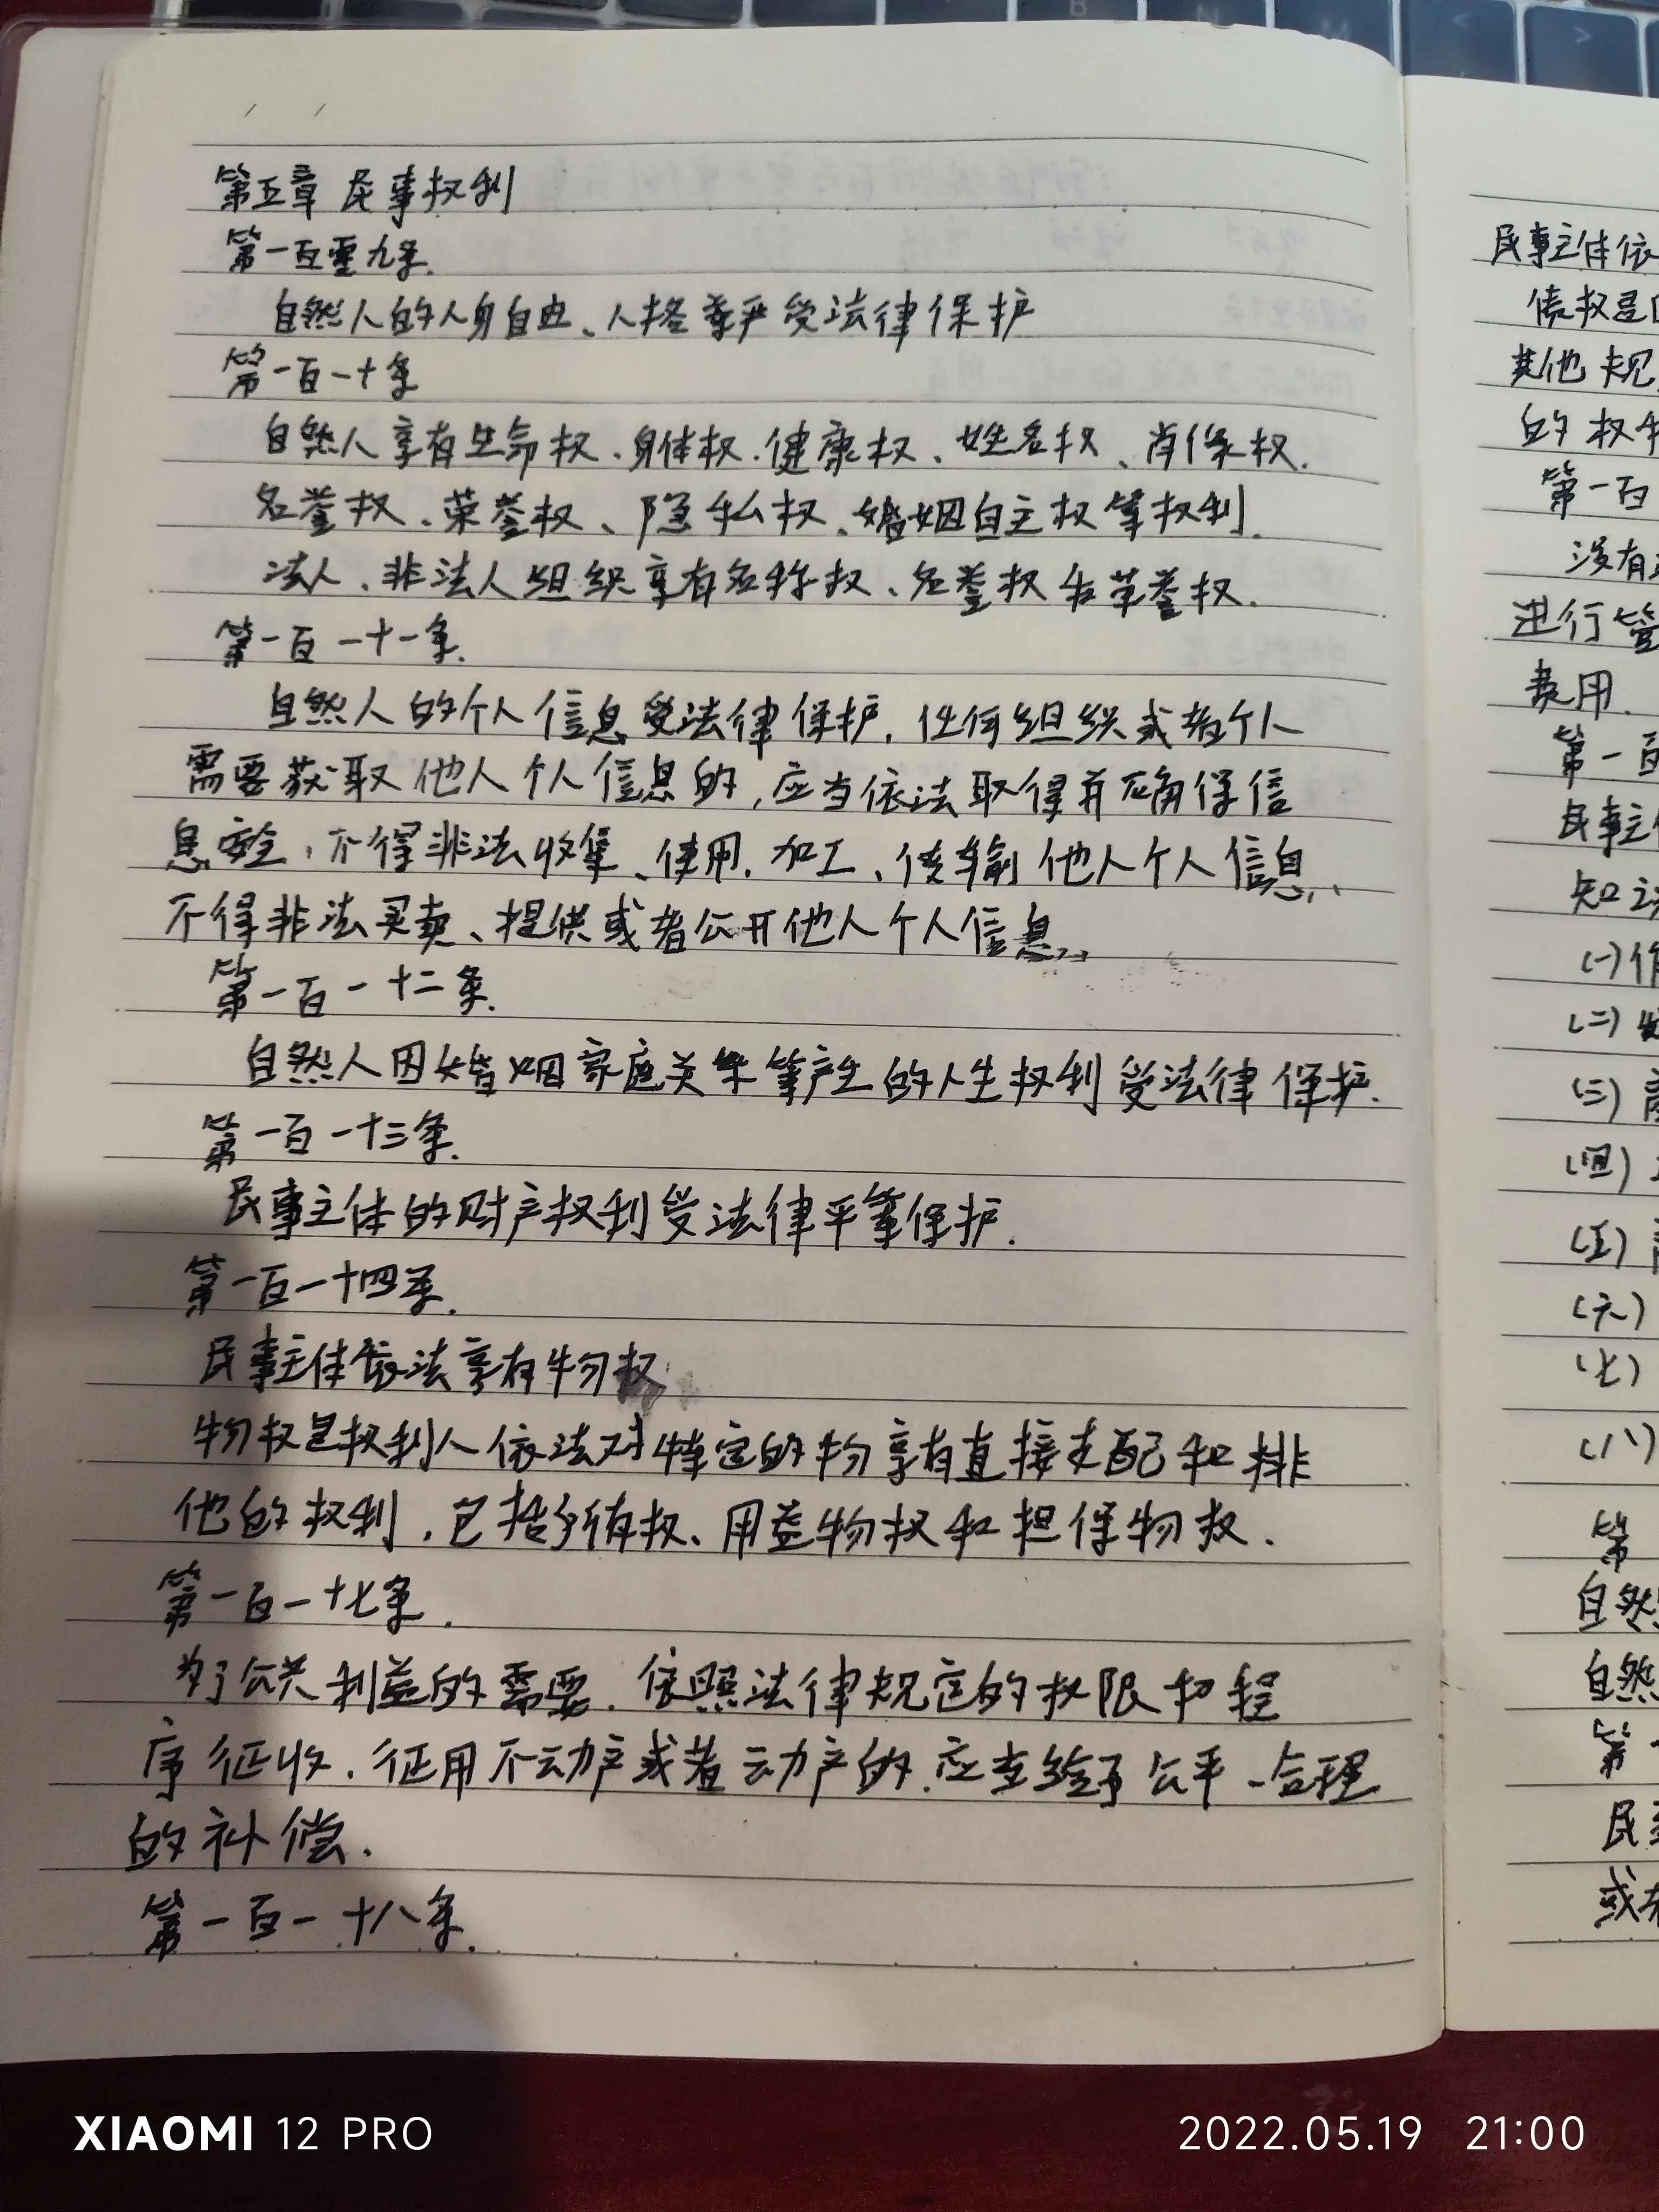 第五章 民事权利
第一百零九条.
自然人的人身自由、人格尊严受法律保护
第一百一十条
自然人享有生命权、身体权、健康权、姓名权、肖像权.
名誉权、荣誉权、隐私权、婚姻自主权等权利.
法人、非法人组织享有名称权、名誉权和荣誉权.
第一百一十一条.
自然人的个人信息受法律保护,任何组织或者个人
需要获取他人个人信息的,应当依法取得并确保信
息安全,不得非法收集、使用、加工、传输他人个人信息,
不得非法买卖、提供或者公开他人个人信息.
第一百一十二条.
自然人因婚姻家庭关系等产生的人生权利受法律保护.
第一百一十三条.
民事主体的财产权利受法律平等保护.
第一百一十四条.
民事主体依法享有物权.
物权是权利人依法对特定的物享有直接支配和排
他的权利,包括所有权、用益物权和担保物权.
第一百一十七条.
为了公共利益的需要,依照法律规定的权限和程
序征收、征用不动产或者动产的,应当给予公平、合理
的补偿.
第一百一十八条.
民事主体依
债权是
其他规
的权利
第一百
没有
进行管
费用.
第一百
民事主体
知识
(一)作
(二)
(三)商
(四)
(五)商
(六)
(七)
(八)
第
自然
自然
第一
民事
或者
XIAOMI 12 PRO
2022.05.19 21:00